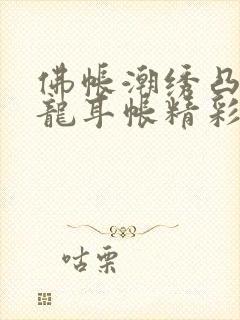 佛帐潮绣凸
龍耳帐精彩
咕栗